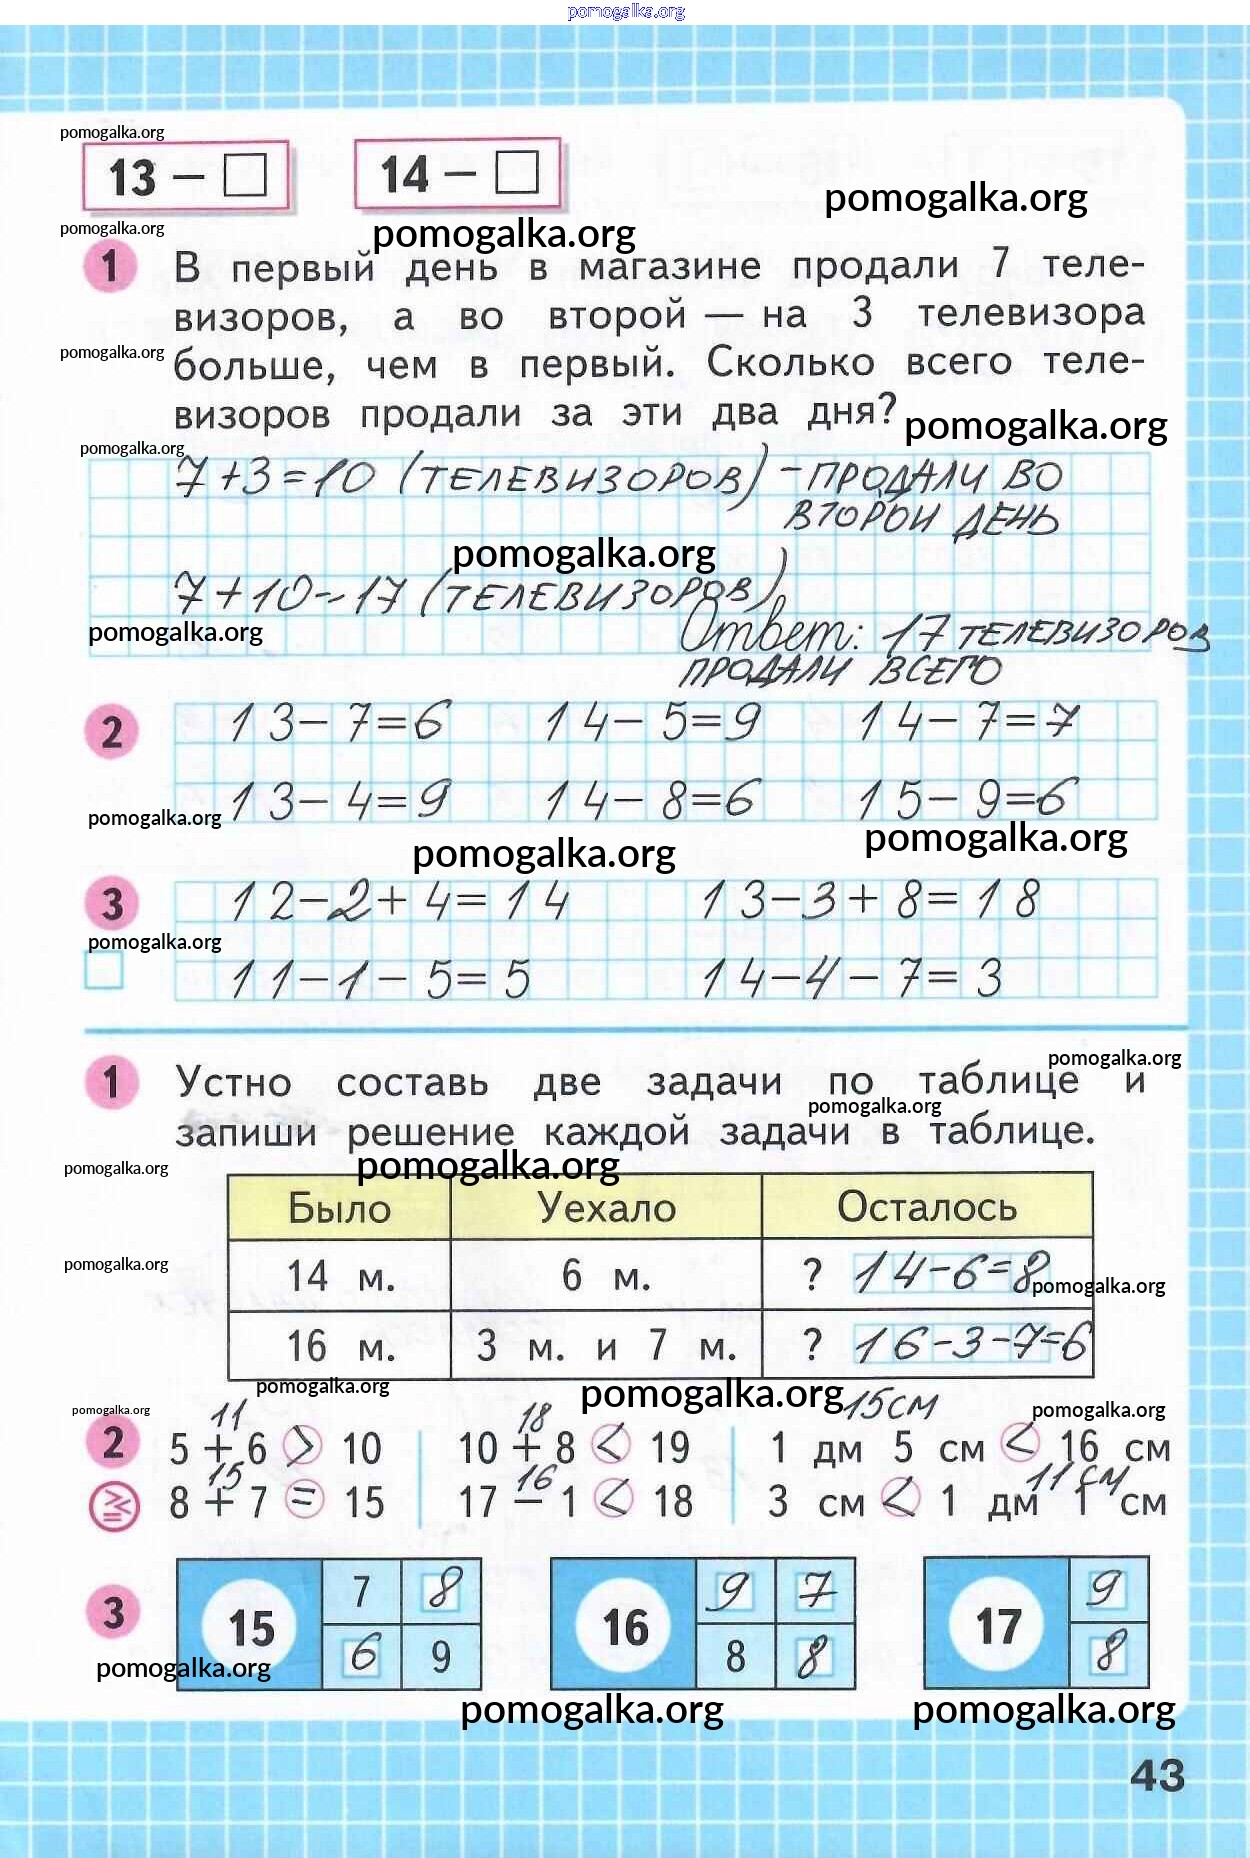 pomogalka.org
pomogalka.org
13 − □ 14 − □
pomogalka.org
pomogalka.org pomogalka.org
1 В первый день в магазине продали 7 теле-
визоров, а во второй — на 3 телевизора
pomogalka.org
больше, чем в первый. Сколько всего теле-
визоров продали за эти два дня?
pomogalka.org
pomogalka.org
7+3=10 (ТЕЛЕВИЗОРОВ) -ПРОДАЛИ ВО
ВТОРОЙ ДЕНЬ
pomogalka.org
7+10=17 (ТЕЛЕВИЗОРОВ)
pomogalka.org
Ответ: 17 ТЕЛЕВИЗОРОВ
ПРОДАЛИ ВСЕГО
2 13-7=6 14-5=9 14-7=7
13-4=9 14-8=6 15-9=6
pomogalka.org
pomogalka.org pomogalka.org
3 12-2+4=14 13-3+8=18
pomogalka.org
11-1-5=5 14-4-7=3
pomogalka.org
1 Устно составь две задачи по таблице и
pomogalka.org
запиши решение каждой задачи в таблице.
pomogalka.org pomogalka.org
Было Уехало Осталось
pomogalka.org
14 м. 6 м. ? 14-6=8
pomogalka.org
16 м. 3 м. и 7 м. ? 16-3-7=6
pomogalka.org pomogalka.org
pomogalka.org 11 18 15СМ pomogalka.org
2 5 + 6 > 10 10 + 8 < 19 1 дм 5 см < 16 см
15 16 11СМ
8 + 7 = 15 17 − 1 < 18 3 см < 1 дм 1 см
3 15 7 8 16 9 7 17 9
6 9 8 8 8
pomogalka.org
pomogalka.org pomogalka.org
43